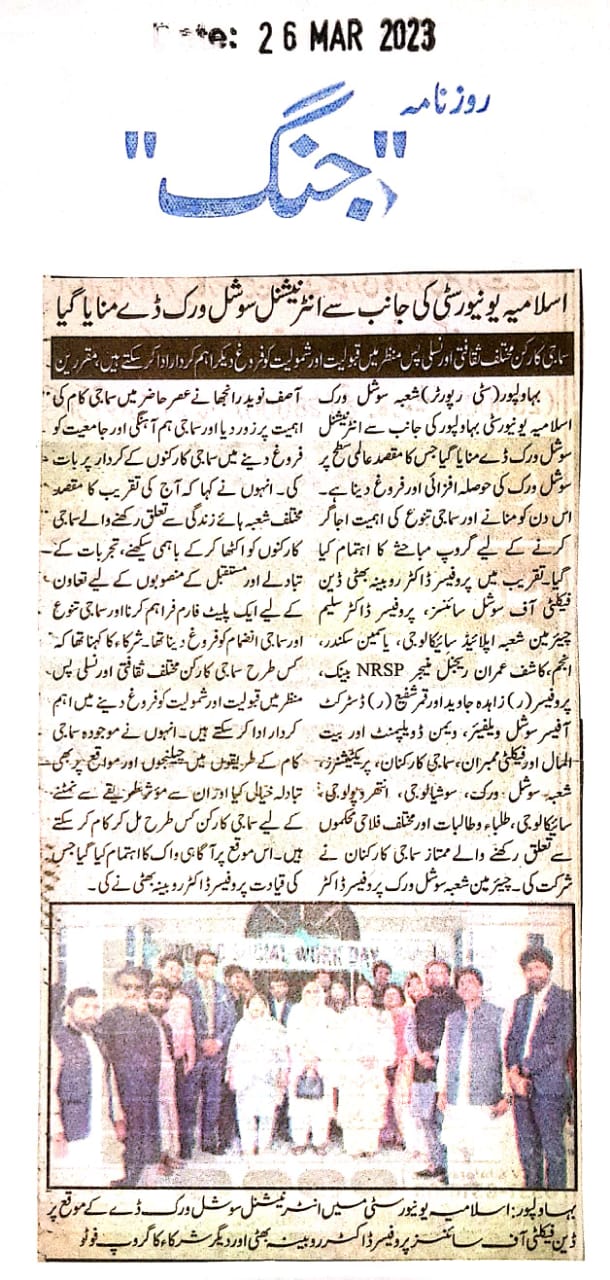 Date: 26 MAR 2023
روزنامہ
"جنگ"
اسلامیہ یونیورسٹی کی جانب سے انٹرنیشنل سوشل ورک ڈے منایا گیا
سماجی کارکن مختلف ثقافتی اور نسلی پس منظر میں قبولیت اور شمولیت کو فروغ دیکر اہم کردار ادا کر سکتے ہیں، مقررین
بہاولپور (سٹی رپورٹر) شعبہ سوشل ورک
اسلامیہ یونیورسٹی بہاولپور کی جانب سے انٹرنیشنل
سوشل ورک ڈے منایا گیا جس کا مقصد عالمی سطح پر
سوشل ورک کی حوصلہ افزائی اور فروغ دینا ہے۔
اس دن کو منانے اور سماجی تنوع کی اہمیت اجاگر
کرنے کے لیے گروپ مباحثے کا اہتمام کیا
گیا۔ تقریب میں پروفیسر ڈاکٹر روبینہ بھٹی ڈین
فیکلٹی آف سوشل سائنسز، پروفیسر ڈاکٹر سلیم
چیئرمین شعبہ اپلائیڈ سائیکالوجی، یاسمین سکندر،
انجم، کاشف عمران ریجنل منیجر NRSP بینک،
پروفیسر (ر) زاہدہ جاوید اور قمر شفیع (ر) ڈسٹرکٹ
آفیسر سوشل ویلفیئر، ویمن ڈویلپمنٹ اور بیت
المال اور فیکلٹی ممبران، سماجی کارکنان، پریکٹیشنرز،
شعبہ سوشل ورک، سوشیالوجی، انتھروپولوجی،
سائیکالوجی، طلباء و طالبات اور مختلف فلاحی محکموں
سے تعلق رکھنے والے ممتاز سماجی کارکنان نے
شرکت کی۔ چیئرمین شعبہ سوشل ورک پروفیسر ڈاکٹر
آصف نوید رانجھا نے عصر حاضر میں سماجی کام کی
اہمیت پر زور دیا اور سماجی ہم آہنگی اور جامعیت کو
فروغ دینے میں سماجی کارکنوں کے کردار پر بات
کی۔ انہوں نے کہا کہ آج کی تقریب کا مقصد
مختلف شعبہ ہائے زندگی سے تعلق رکھنے والے سماجی
کارکنوں کو اکٹھا کر کے باہمی سیکھنے، تجربات کے
تبادلے اور مستقبل کے منصوبوں کے لیے تعاون
کے لیے ایک پلیٹ فارم فراہم کرنا اور سماجی تنوع
اور سماجی انضمام کو فروغ دینا تھا۔ شرکاء کا کہنا تھا کہ
کس طرح سماجی کارکن مختلف ثقافتی اور نسلی پس
منظر میں قبولیت اور شمولیت کو فروغ دینے میں اہم
کردار ادا کر سکتے ہیں۔ انہوں نے موجودہ سماجی
کام کے طریقوں میں چیلنجوں اور مواقع پر بھی
تبادلہ خیالی کیا اور ان سے مؤثر طریقے سے نمٹنے
کے لیے سماجی کارکن کس طرح مل کر کام کر سکتے
ہیں۔ اس موقع پر آگاہی واک کا اہتمام کیا گیا جس
کی قیادت پروفیسر ڈاکٹر روبینہ بھٹی نے کی۔
WORK DAY
بہاولپور: اسلامیہ یونیورسٹی میں انٹرنیشنل سوشل ورک ڈے کے موقع پر
ڈین فیکلٹی آف سائنسز پروفیسر ڈاکٹر روبینہ بھٹی اور دیگر شرکاء کا گروپ فوٹو